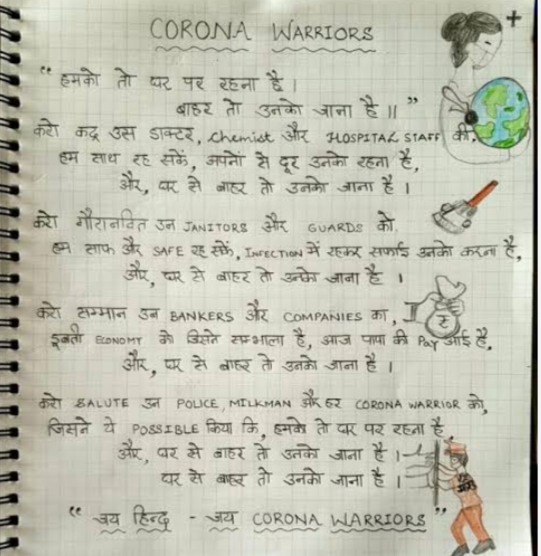 CORONA WARRIORS
“ हमको तो घर पर रहना है ।
बाहर तो उनको जाना है ॥ ”
करो कद्र उस डाक्टर, Chemist और HOSPITAL STAFF की,
हम साथ रह सकें, अपनों से दूर उनको रहना है,
और, घर से बाहर तो उनको जाना है ।
करो गौरानवित उन JANITORS और GUARDS को
हम साफ और SAFE रह सकें, INFECTION में रहकर सफाई उनको करना है,
और, घर से बाहर तो उनको जाना है ।
करो सम्मान उन BANKERS और COMPANIES का,
डूबती ECONOMY को जिसने सम्भाला है, आज पापा की PAY आई है,
और, घर से बाहर तो उनको जाना है ।
करो SALUTE उन POLICE, MILKMAN और हर CORONA WARRIOR को,
जिसने ये POSSIBLE किया कि, हमको तो घर पर रहना है
और, घर से बाहर तो उनको जाना है ।
घर से बाहर तो उनको जाना है ।
“ जय हिन्द - जय CORONA WARRIORS ”